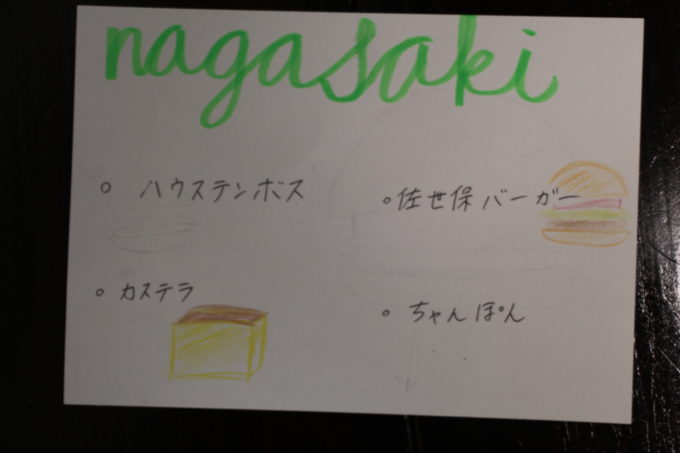 nagasaki
○ ハウステンボス
○ 佐世保バーガー
○ カステラ
○ ちゃんぽん